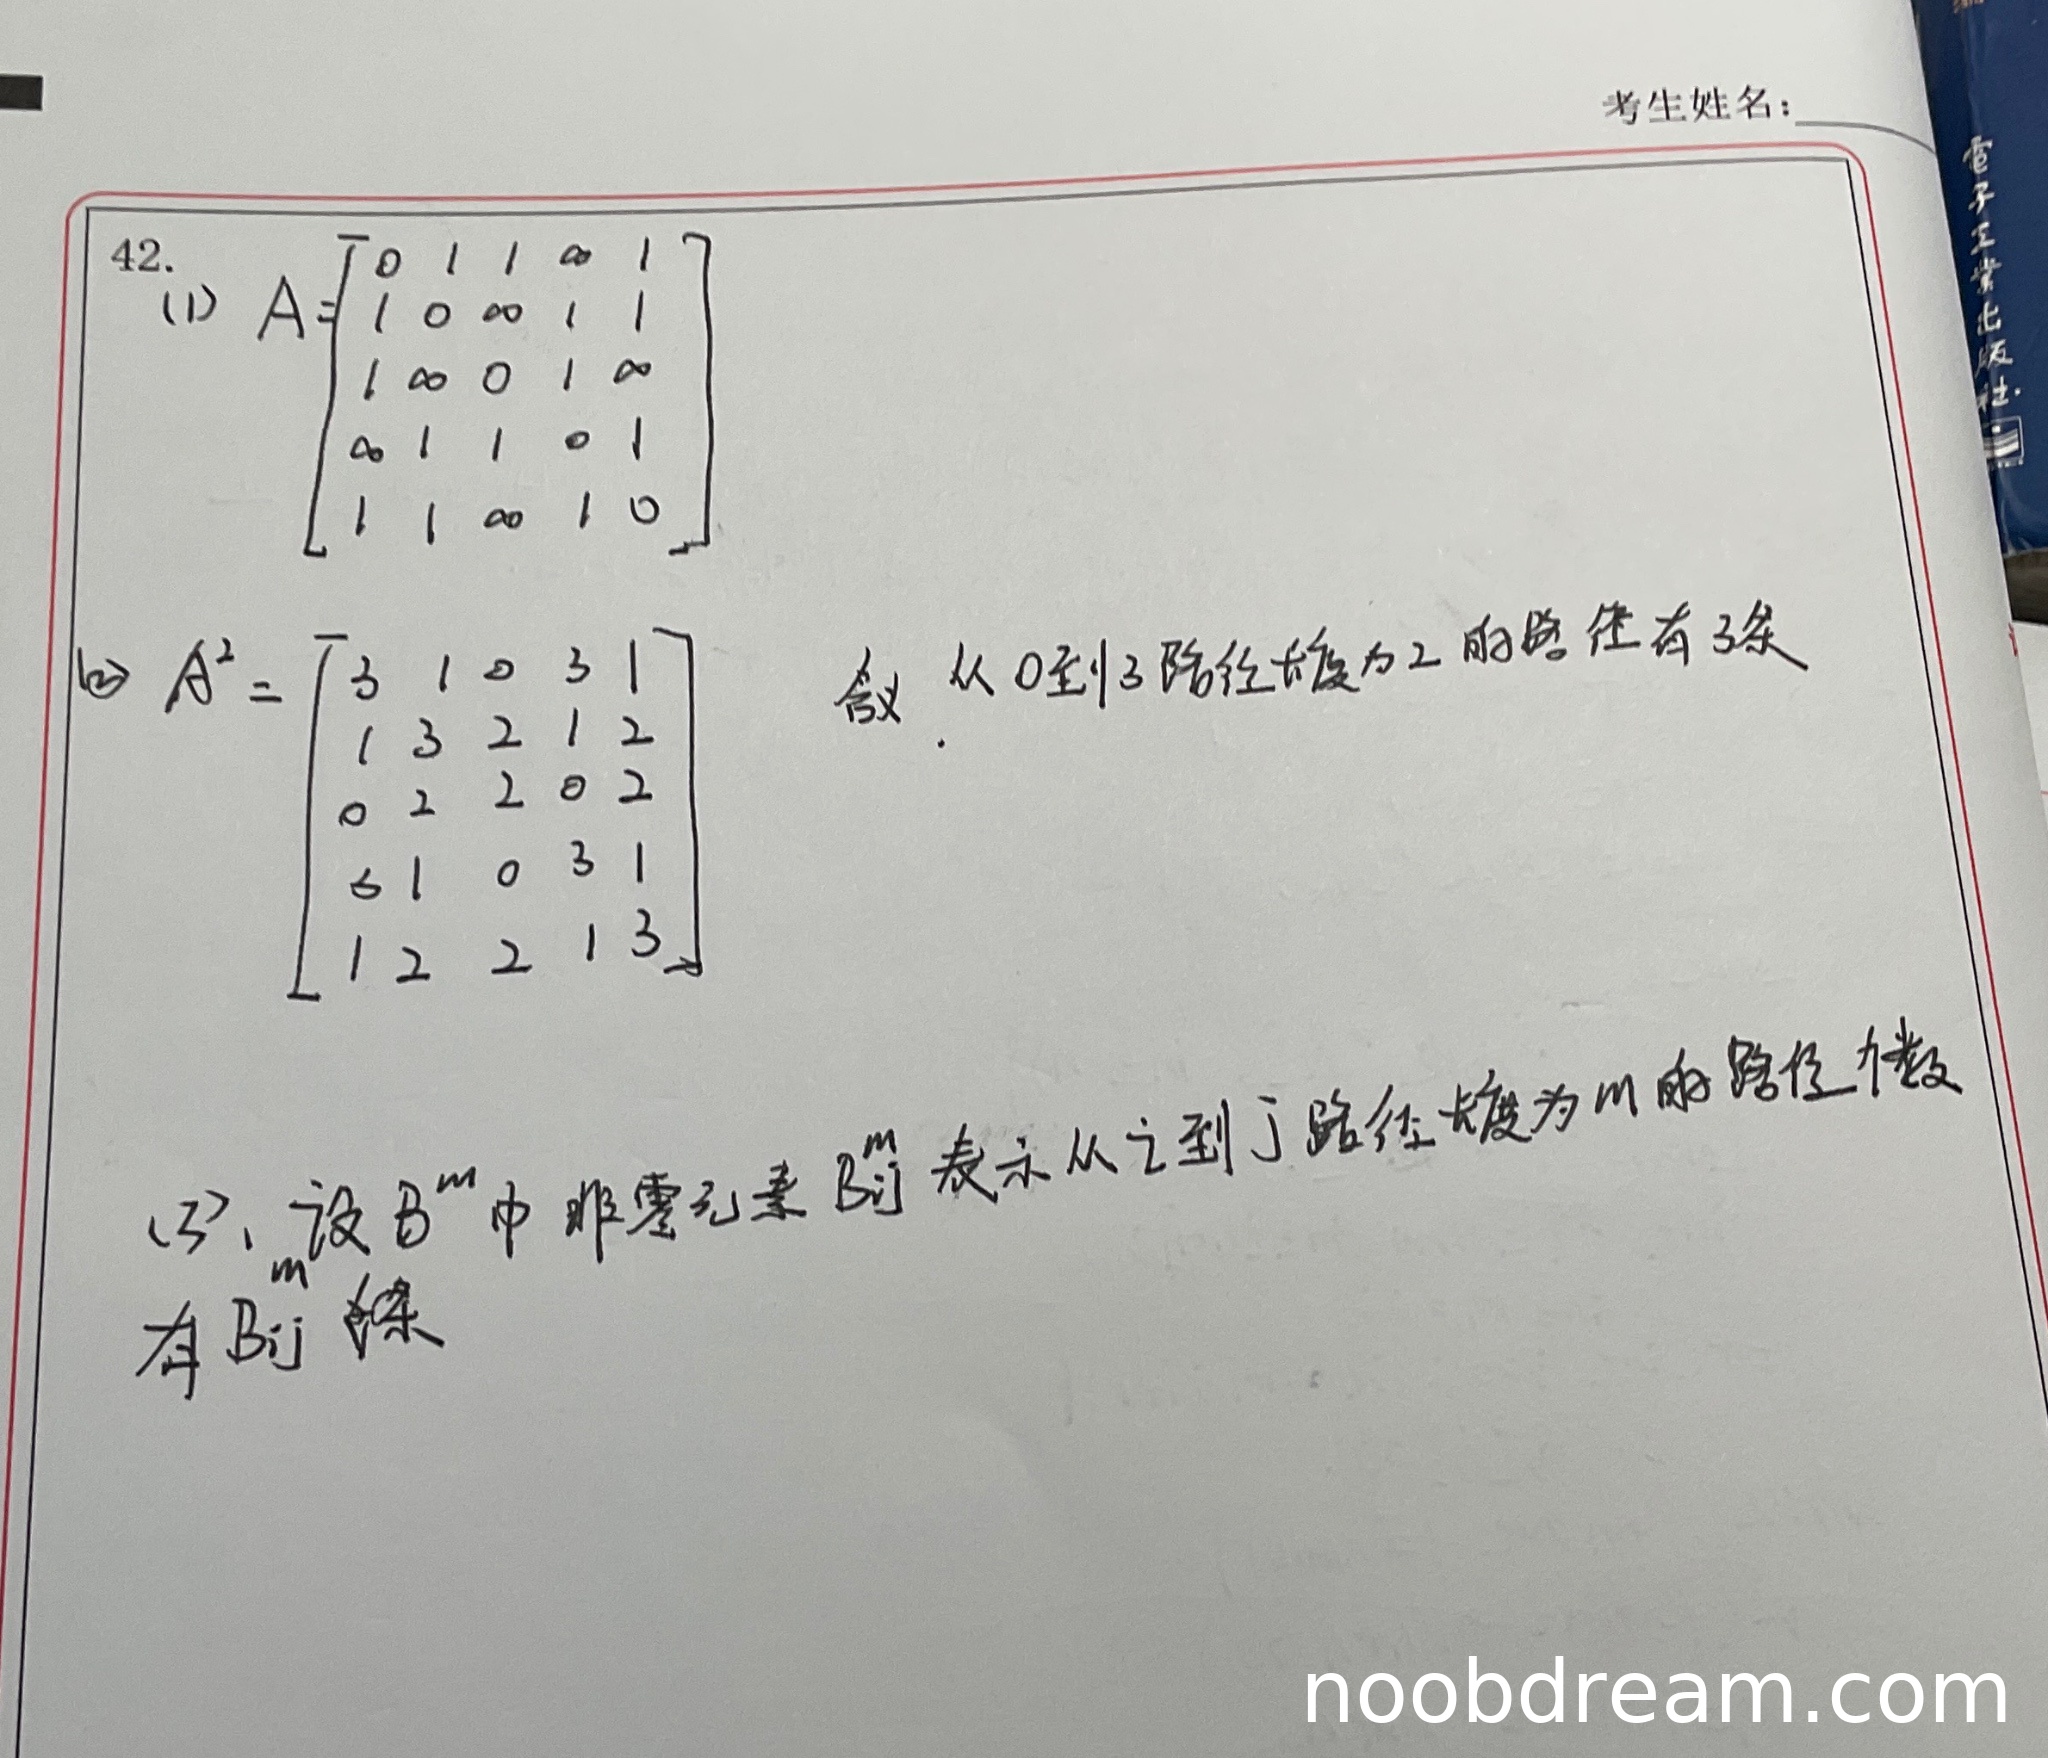 考生姓名:
42.
(1) A =
0 1 1 ∞ 1
1 0 ∞ 1 1
1 ∞ 0 1 ∞
∞ 1 1 0 1
1 1 ∞ 1 0
(2) A² =
3 1 0 3 1
1 3 2 1 2
0 2 2 0 2
3 1 0 3 1
1 2 2 1 3
含义. 从0到3路径长度为2的路径有3条
(3)、设Bᵐ中非零元素Bᵢⱼᵐ表示从i到j路径长度为m的路径个数
有Bᵢⱼᵐ条
电子工业出版社.
noobdream.com